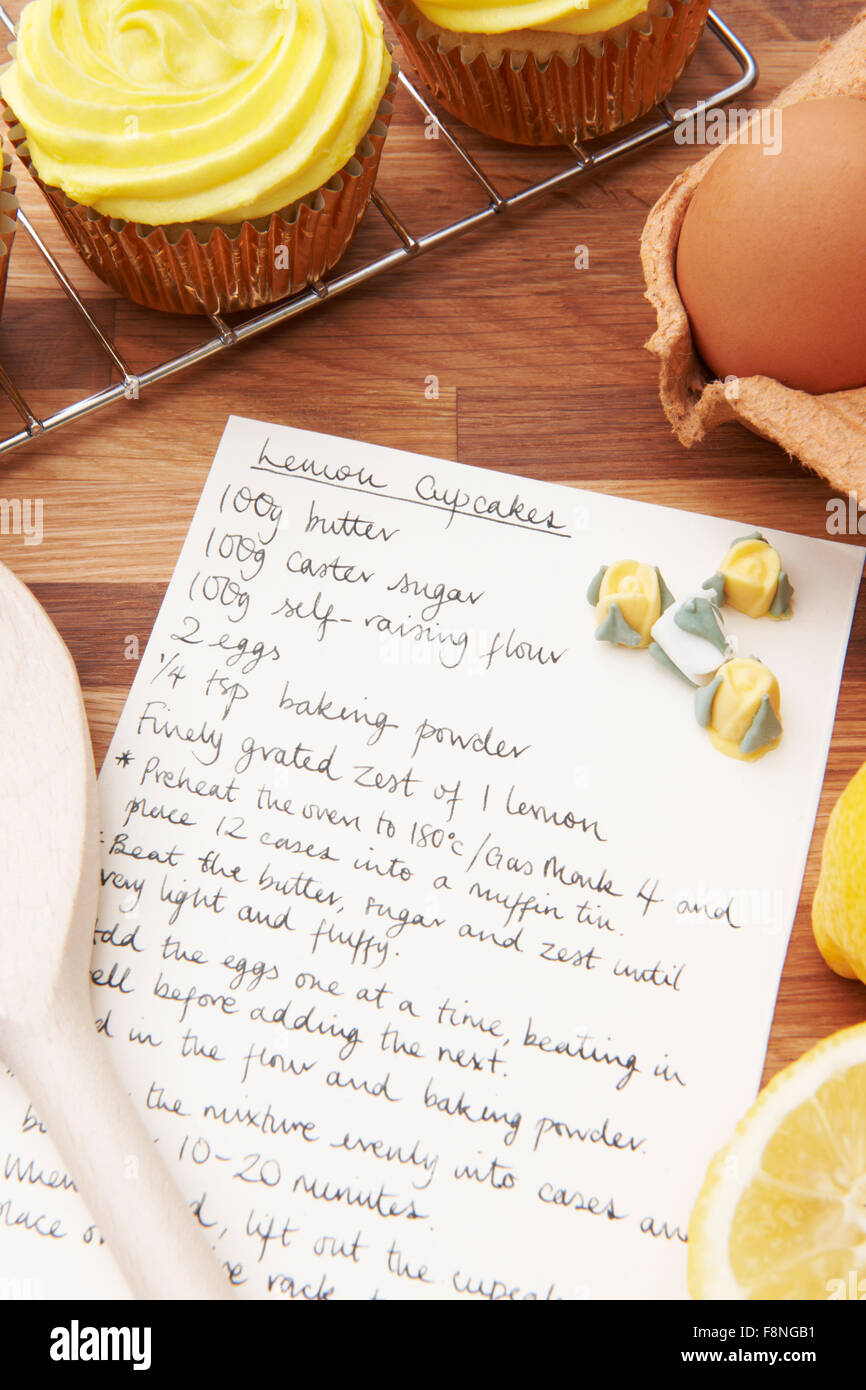 Lemon Cupcakes
100g butter
100g caster sugar
100g self-raising flour
2 eggs
1/4 tsp baking powder
Finely grated zest of 1 lemon
* Preheat the oven to 180°c/Gas Mark 4 and
place 12 cases into a muffin tin.
Beat the butter, sugar and zest until
very light and fluffy.
dd the eggs one at a time, beating in
ell before adding the next.
d in the flour and baking powder.
the mixture evenly into cases an
10-20 minutes.
When d, lift out the cupcak
lace o re rack
alamy
Image ID: F8NGB1
www.alamy.com